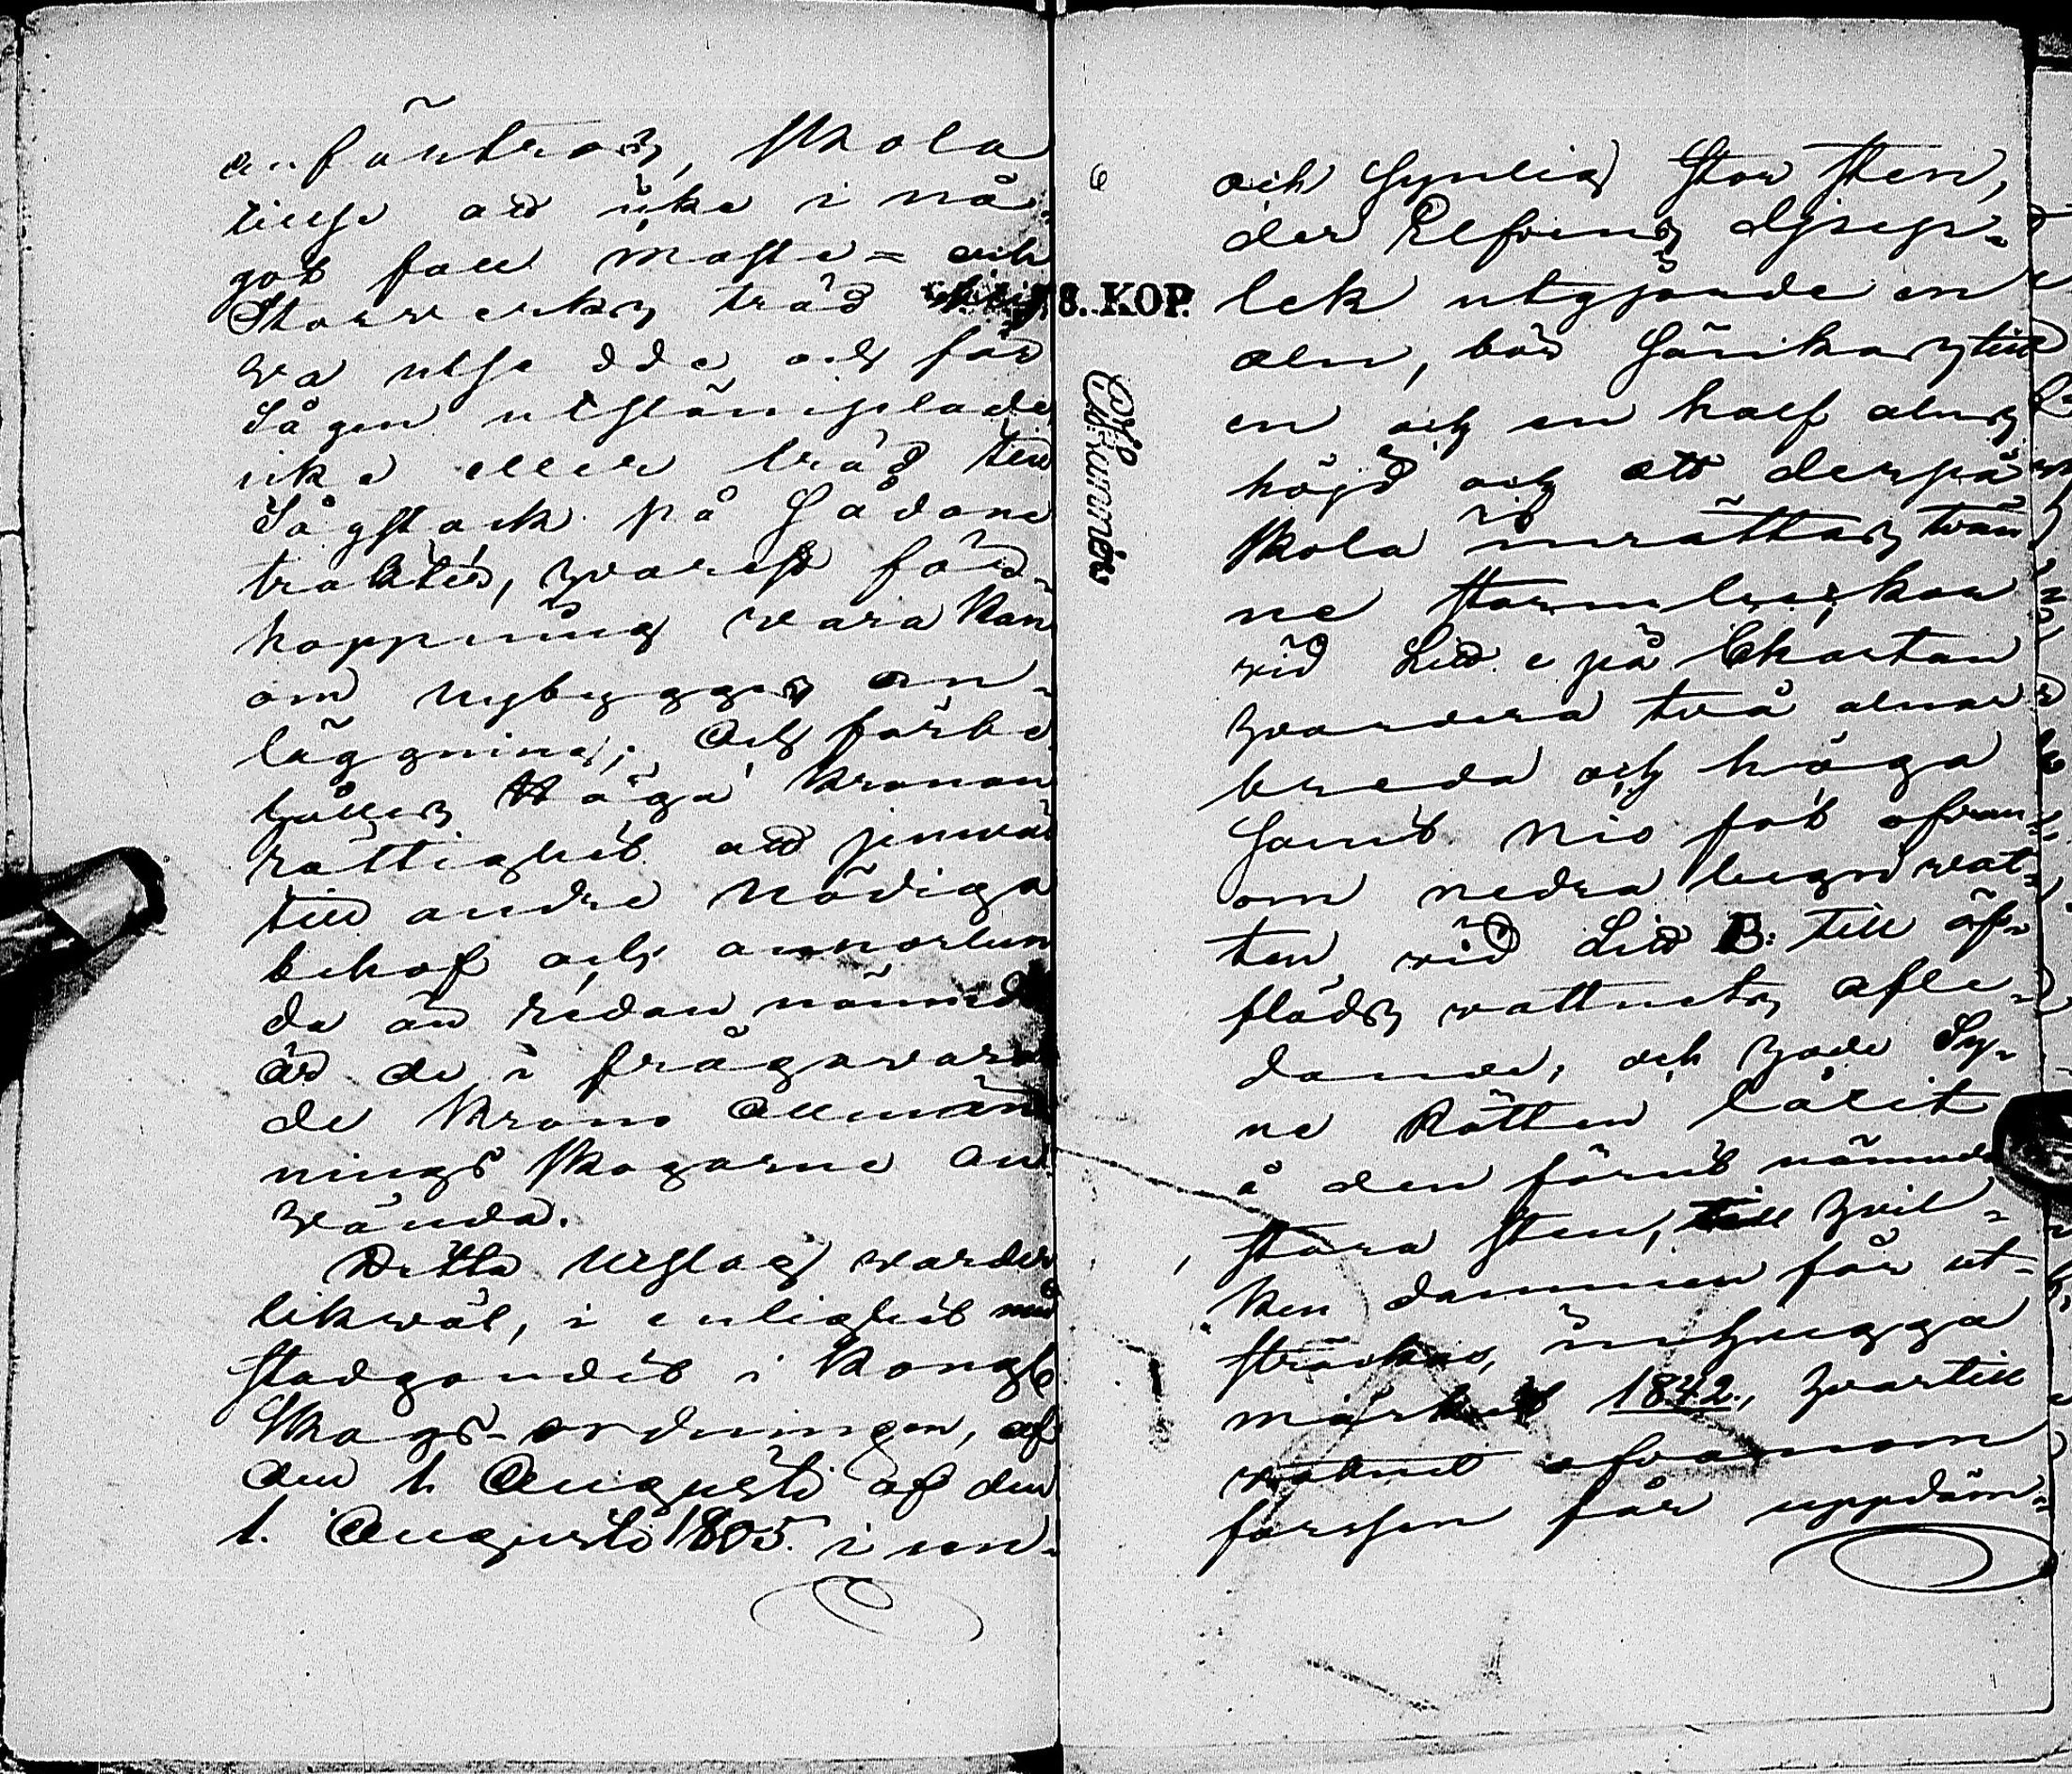 anförtros, skola
tillse att icke i nå-
got fall maste- och
Storverks träd
va utsedde och för
Sågen utstämplade
icke eller träd till
Sågstock på sådane
trakter, hvarest för-
hoppning vara kan
om nybygges an-
läggning; Och förbe-
hålles Höga Kronan
rättighet att jemväl
till andre nödiga
behof och annorlun
da än redan nämndt
är de i frågavaran
de Krono Allmän
nings skogarne an
vända.
Detta Utslag varder
likväl, i enlighet med
stadgandet i Kongl
Skogs-ordningen, af
den 1. Augusti af den
1. Augusti 1805. i un-
6
8. KOP.
och synlig stor sten,
der Elfvens djup-
lek utgjorde en
aln, bör sänkas till
en och en half alns
höjd och att derpå
skola inrättas tvän
ne stamluckor
vid Litt. c på Chartan
hvardera två alnar
breda och höga
samt nio fot ofvan-
om nedra lugnvat-
ten vid Litt B: till öf-
flöds vattnets afle-
dande; och hade Sy-
ne Rätten låtit
å den förut nämnde
stora sten, till hvil-
ken dammen får ut-
sträckas, inhugga
märket 1842., hvartill
vatnet ofvanom
forssen får uppdäm-